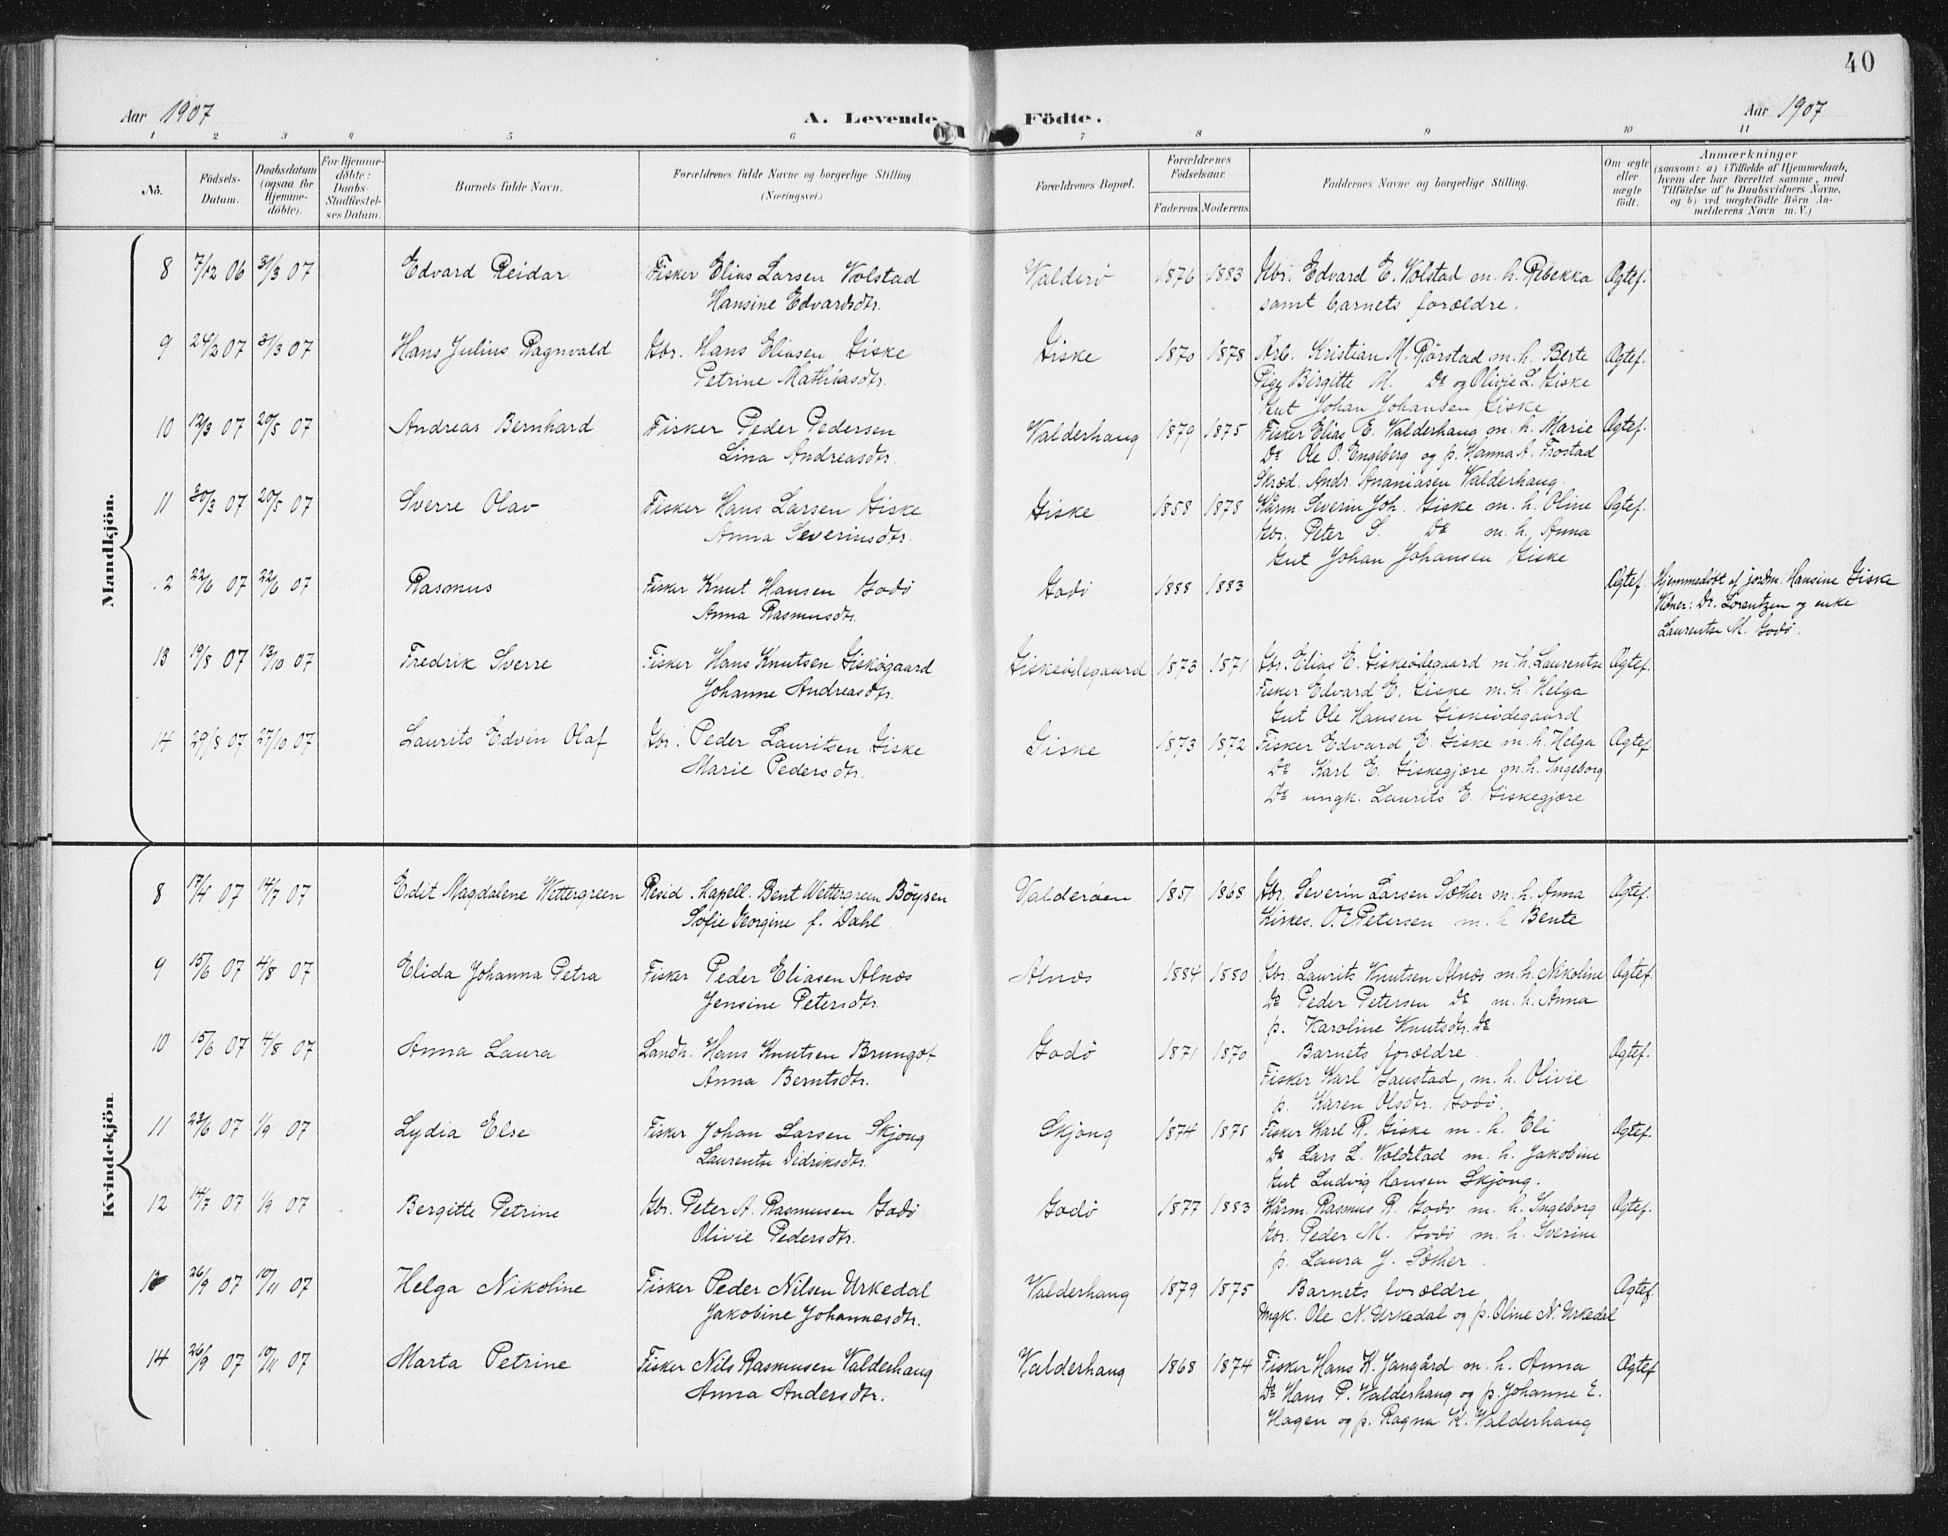 40
Aar 1907 A. Levende Födte. Aar 1907
1 2 3 4 5 6 7 8 9 10 11
No. Födsels-Datum. Daabsdatum (ogsaa for Hjemme-döbte). For Hjemme-döbte: Daabs-Stadfæstel-ses Datum. Barnets fulde Navn. Forældrenes fulde Navne og borgerlige Stilling. (Næringsvei.) Forældrenes Bopæl. Forældrenes Födselsaar. Faderens Moderens Faddernes Navne og borgerlige Stilling. Om ægte eller uægte födt. Anmærkninger (saasom: a) i Tilfælde af Hjemmedaab, hvem der har forrettet samme, med Tilföielse af to Daabsvidners Navne, og b) ved uægtefödte Börn An-melderens Navn m. V.)
Mandkjön.
8 7/12 06 31/3 07 Edvard Reidar Fisker Elias Larsen Volstad Valderö 1876 1883 Gbr. Edvard E. Volstad m. h. Rebekka Ægtef.
Hansine Edvardsdtr. samt barnets forældre.
9 24/2 07 31/3 07 Hans Julius Ragnvald Gbr. Hans Eliasen Giske Giske 1870 1878 Arb. Kristian M. Rörstad m. h. Berte Ægtef.
Petrine Mathiasdtr. Pige Birgitte M. Do og Olivie L. Giske
Gut Johan Johansen Giske
10 12/3 07 20/5 07 Andreas Bernhard Fisker Peder Pedersen Valderhaug 1879 1875 Fisker Elias E. Valderhaug m. h. Marie Ægtef.
Lina Andreasdtr. Do Ole O. Engeberg og p. Hanna A. Frostad
Skræd. Andr. Ananiasen Valderhaug.
11 30/3 07 20/5 07 Sverre Olav Fisker Hans Larsen Giske Giske 1858 1878 Kårm. Severin Joh. Giske m. h. Oline Ægtef.
Anna Severinsdtr. Gbr. Peter S. Do m. h. Anna
Gut Johan Johansen Giske
.2 22/6 07 22/6 07 Rasmus Fisker Knut Hansen Godö Godö 1888 1883 Ægtef. Hjemmedöbt af jordm. Hansine Giske
Anna Rasmusdtr. Vidner: Dr. Lorentzen og enke
Laurentse M. Godö.
13 19/8 07 13/10 07 Fredrik Sverre Fisker Hans Knutsen Giskögaard Giskeödegaard 1873 1871 Gbr. Elias E. Giskeödegaard m. h. Laurentse Ægtef.
Johanne Andreasdtr. Fisker Edvard E. Giske m. h. Helga
Gut Ole Hansen Giskeödegaard
14 29/8 07 27/10 07 Laurits Edvin Olaf Gbr. Peder Lauritsen Giske Giske 1873 1872 Fisker Edvard E. Giske m. h. Helga Ægtef.
Marie Pedersdtr. Do Karl E. Giskegjære m. h. Ingeborg
Do ungk. Laurits E. Giskegjære
Kvindekjön.
8 17/4 07 14/7 07 Edit Magdalene Wettergreen Resid. Kapell. Bent Wettergreen Böysen Valderöen 1851 1868 Gbr. Severin Larsen Sæther m. h. Anna Ægtef.
Sofie Georgine f. Dahl Kirkes. O. E. Petersen m. h Bente
9 15/6 07 4/8 07 Elida Johanna Petra Fisker Peder Eliasen Alnæs Alnæs 1884 1880 Gbr. Laurits Knutsen Alnæs m. h. Nikoline Ægtef.
Jensine Petersdtr. Do Peder Petersen Do m. h. Anna
p. Karoline Knutsdtr. Do
10 15/6 07 4/8 07 Anna Laura Landh. Hans Knutsen Brungot Godö 1871 1870 Barnets forældre. Ægtef.
Anna Berntsdtr. Fisker Karl Gaustad, m. h. Olivie
p. Karen Olsdtr. Godö.
11 22/6 07 1/9 07 Lydia Else Fisker Johan Larsen Skjong Skjong 1874 1875 Fisker Karl R. Giske m. h. Eli Ægtef.
Laurentse Didriksdtr. Do Lars L. Voldstad m. h. Jakobine
Gut Ludvig Hansen Skjong.
12 14/7 07 1/9 07 Bergitte Petrine Gbr. Peter A. Rasmusen Godö Godö 1877 1883 Kårm. Rasmus R. Godö m. h. Ingeborg Ægtef.
Olivie Pedersdtr. Gbr. Peder M. Godö m. h. Sverine
p. Laura J. Sæther.
26/9 07 10/11 07 Helga Nikoline Fisker Peder Nilsen Urkedal Valderhaug 1879 1875 Barnets forældre Ægtef.
Jakobine Johannesdtr. Ungk. Ole N. Urkedal og p. Oline N. Urkedal
14 26/9 07 10/11 07 Marta Petrine Fisker Nils Rasmusen Valderhaug Valderhaug 1868 1874 Fisker Hans K. Jangård m. h. Anna Ægtef
Anna Andersdtr. Do Hans P. Valderhaug og p. Johanne E.
Hagen og p. Ragna K. Valderhaug